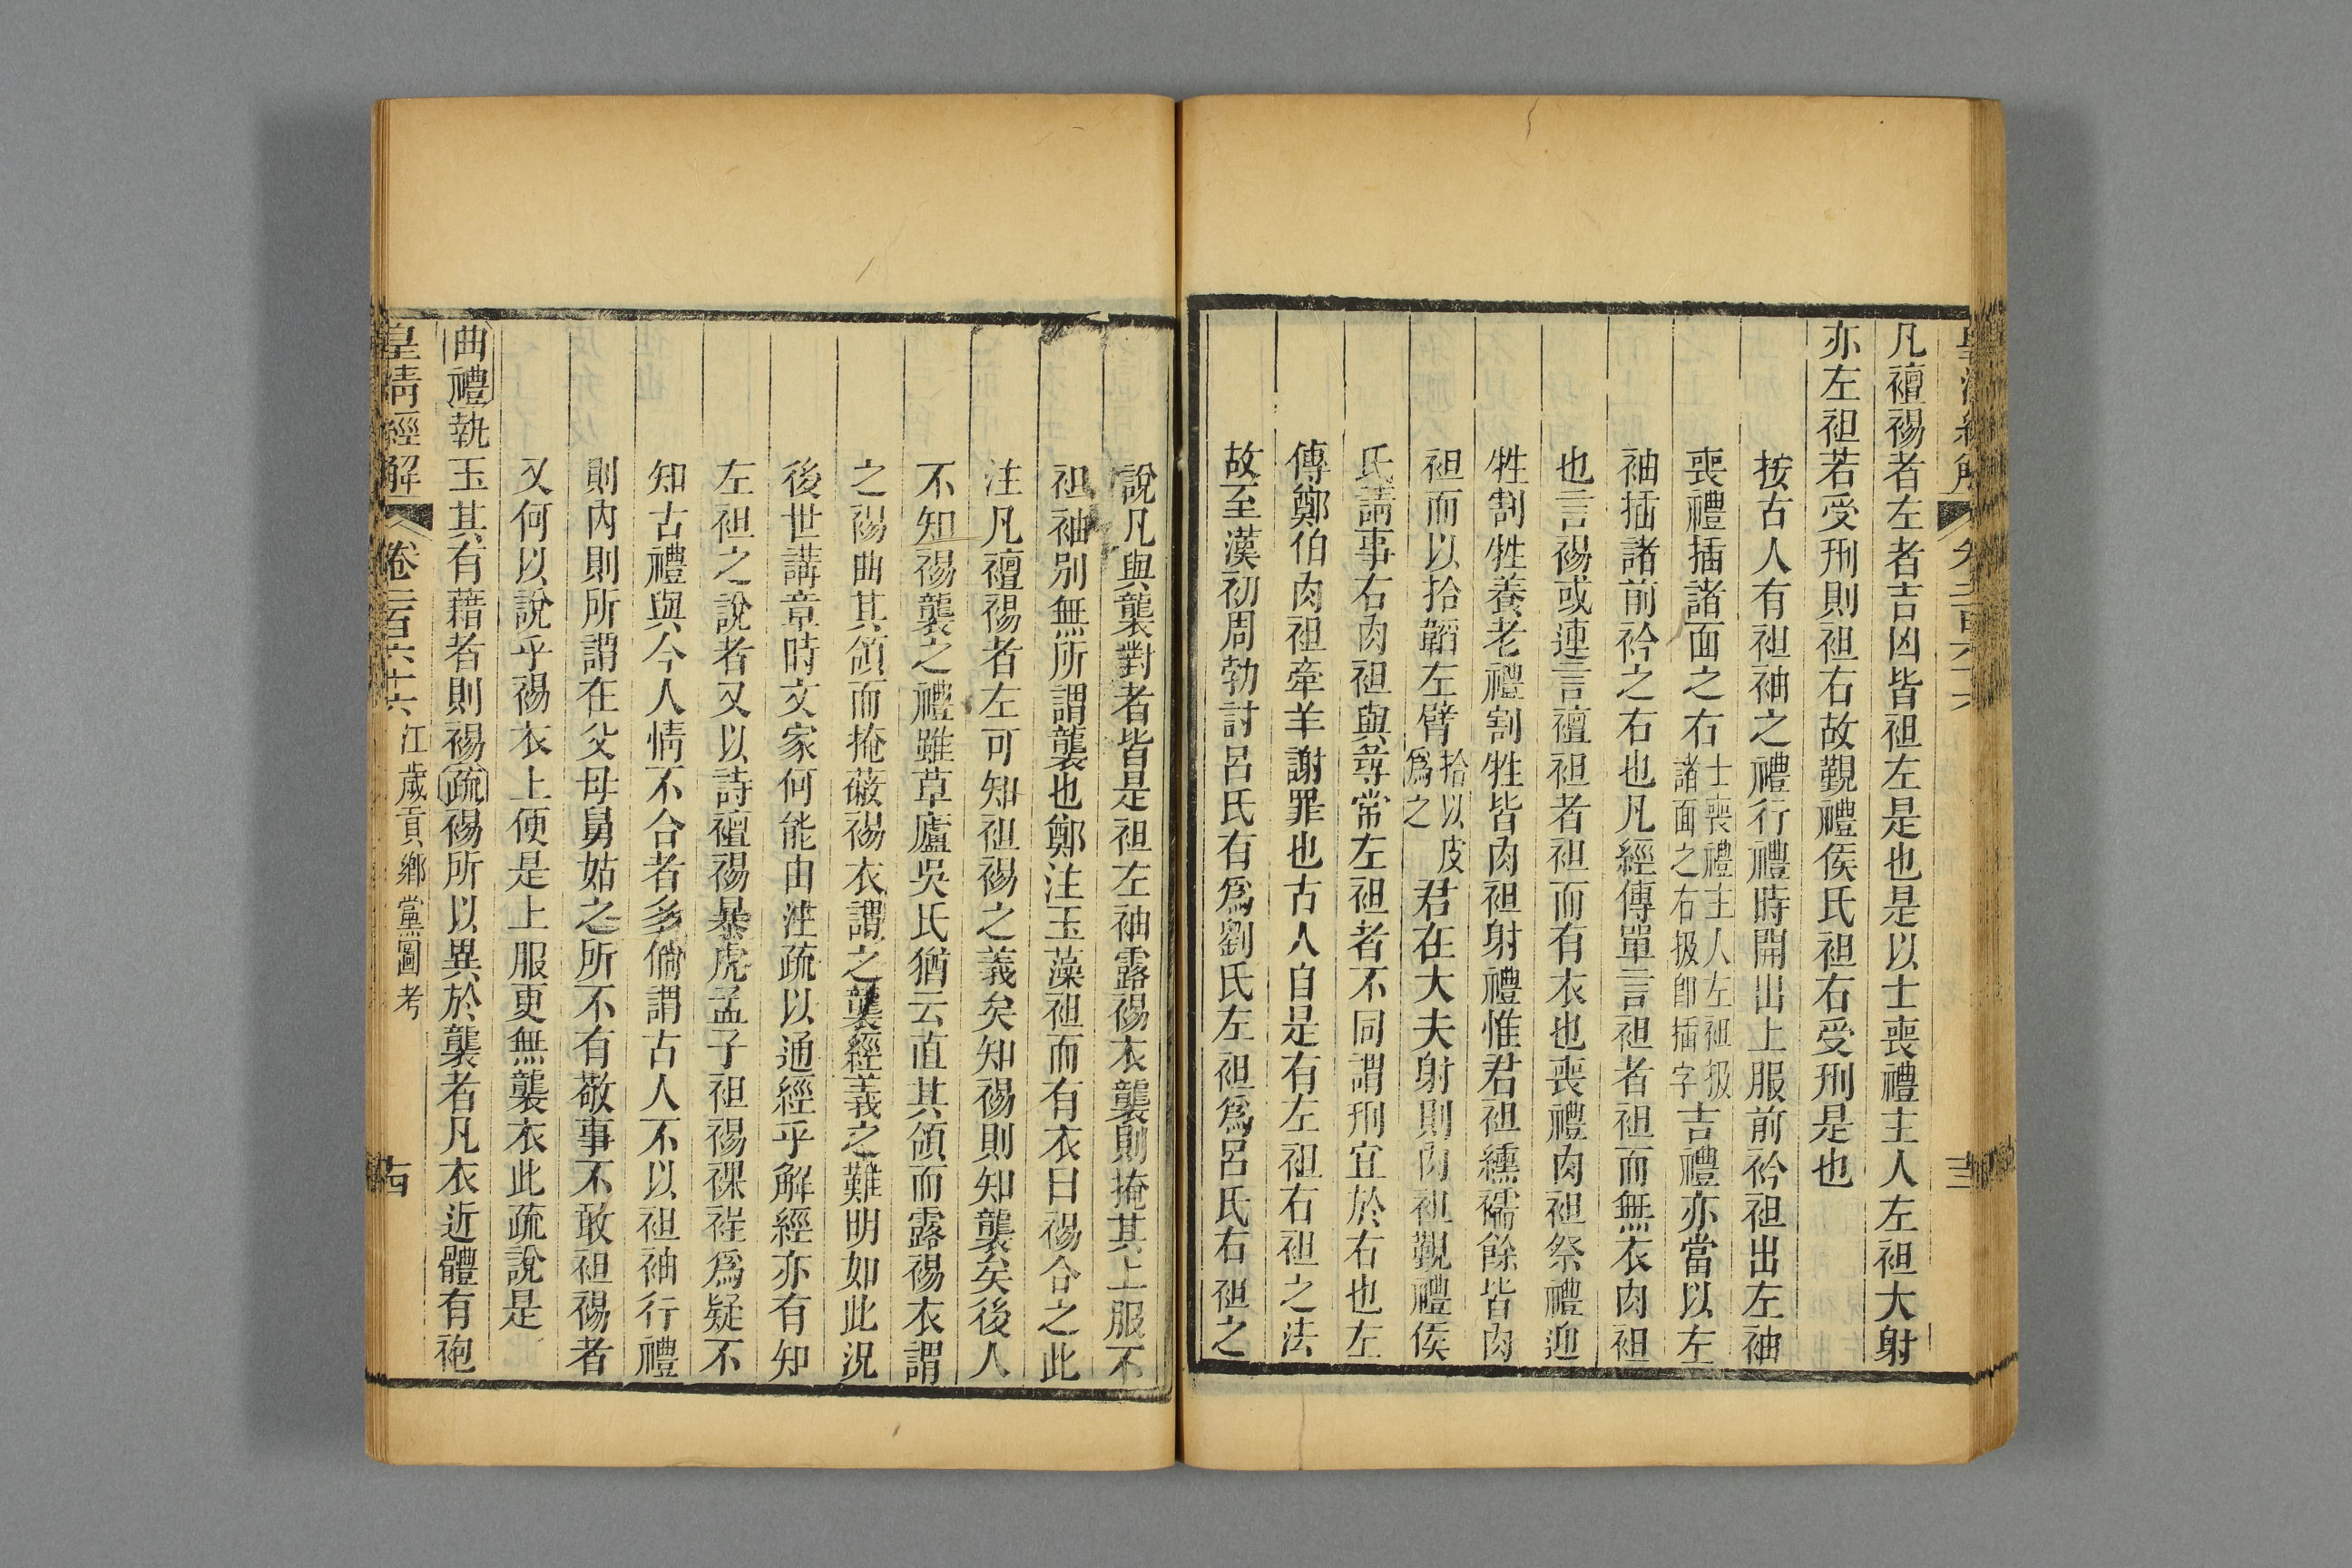 凡襢裼者左者吉凶皆袒左是也是以士喪禮主人左袒大射
亦左袒若受刑則袒右故觀禮侯氏袒右受刑是也
按古人有袒袖之禮行禮時開出上服前衿袒出左袖
喪禮插諸面之右士喪禮主人左袒扱諸面之右扱卽插字吉禮亦當以左
袖插諸前衿之右也凡經傳單言袒者袒而無衣肉袒
也言裼或連言襢袒者袒而有衣也喪禮肉袒祭禮迎
牲割牲養老禮割牲皆肉袒射禮惟君袒纁襦餘皆肉
袒而以拾韜左臂拾以皮爲之君在大夫射則肉袒覲禮侯
氏請事右肉袒與尋常左袒者不同謂刑宜於右也左
傳鄭伯肉袒牽羊謝罪也古人自是有左袒右袒之法
故至漢初周勃討呂氏有爲劉氏左袒爲呂氏右袒之
說凡與襲對者皆是袒左袖露裼衣襲則掩其上服不
袒袖別無所謂襲也鄭注玉藻袒而有衣曰裼合之此
注凡襢裼者左可知袒裼之義矣知裼則知襲矣後人
不知裼襲之禮雖草廬吳氏猶云直其領而露裼衣謂
之裼曲其領而掩蔽裼衣謂之襲經義之難明如此況
後世講章時文家何能由注疏以通經乎解經亦有知
左袒之說者又以詩襢裼暴虎孟子袒裼裸裎爲疑不
知古禮與今人情不合者多倘謂古人不以袒袖行禮
則內則所謂在父母舅姑之所不有敬事不敢袒裼者
又何以說乎裼衣上便是上服更無襲衣此疏說是
曲禮執玉其有藉者則裼疏裼所以異於襲者凡衣近體有袍
皇清經解 卷二百六十六 江歲貢鄉黨圖考 古